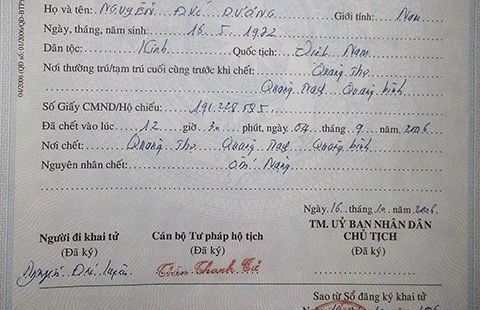 Họ và tên: NGUYỄN ĐỨC DƯƠNG Giới tính: Nam
Ngày, tháng, năm sinh: 16.5.1972
Dân tộc: Kinh Quốc tịch: Việt Nam
Nơi thường trú/tạm trú cuối cùng trước khi chết: Quảng Thọ
Quảng Trạch Quảng Bình
Số Giấy CMND/Hộ chiếu: 191.228.595
Đã chết vào lúc: 12 giờ 30 phút, ngày 04 tháng 9 năm 2006
Nơi chết: Quảng Thọ Quảng Trạch Quảng Bình
Nguyên nhân chết: ốm nặng
Ngày 16 tháng 10 năm 2006
Người đi khai tử Cán bộ Tư pháp hộ tịch TM. UỶ BAN NHÂN DÂN
CHỦ TỊCH
(Đã ký) (Đã ký) (Đã ký)
Nguyễn Đức Trần Thanh
Sao từ Sổ đăng ký khai tử